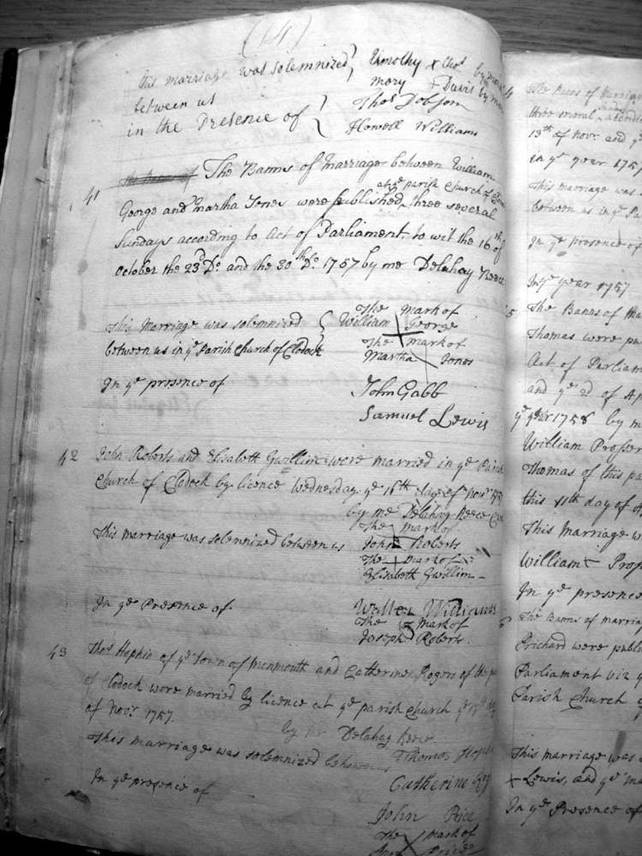 (14)
this marriage was solemnized } Timothy x
between us mary + Davis
in the Presence of { Thos Dobson
Howell Williams
41 The Banns of Marriage between William
at ye parish Church of
George and Martha Jones were published three several
Sundays according to Act of Parliament, to wit the 16th of
October the 23d Do and the 30th Do 1757 by me Delahay Reece
This Marriage was solemnized { The Mark of William George
between us in ye Parish Church of Clodock The mark of Martha Jones
In ye presence of John Gabb
Samuel Lewis
42 John Roberts and Elisabett Gwillim were married in ye Parish
Church of Clodock by licence Wednesday ye 16th daye of Novr
by me Delahay Reece
This marriage was solemnized between us The mark of John Roberts
The mark of Elisabett Gwillim
In ye Presence of Walter Williams
The mark of Joseph Roberts
43 Thos Hopkin of ye Town of Munmouth and Catherine Rogers of
of Clodock were married by licence at ye parish Church ye
of Novr 1757. by me Delahay Reece
This marriage was solemnized between Thomas
Catherine
In ye presence of John Rice
The mark of
The Banns of
three several
13th of Novr and ye
in ye year 1757
This marriage was
between us in ye
In ye presence of
In ye year 1757
The Banns of
Thomas were
Act of
and ye 2d of
ye year 1758 by
William Prosser
Thomas of this
this 11th day of
This Marriage
William
In ye presence
The Banns of
Prichard were
Parliament viz
Parish Church
This marriage was
+ Lewis, and ye
In ye Presence of